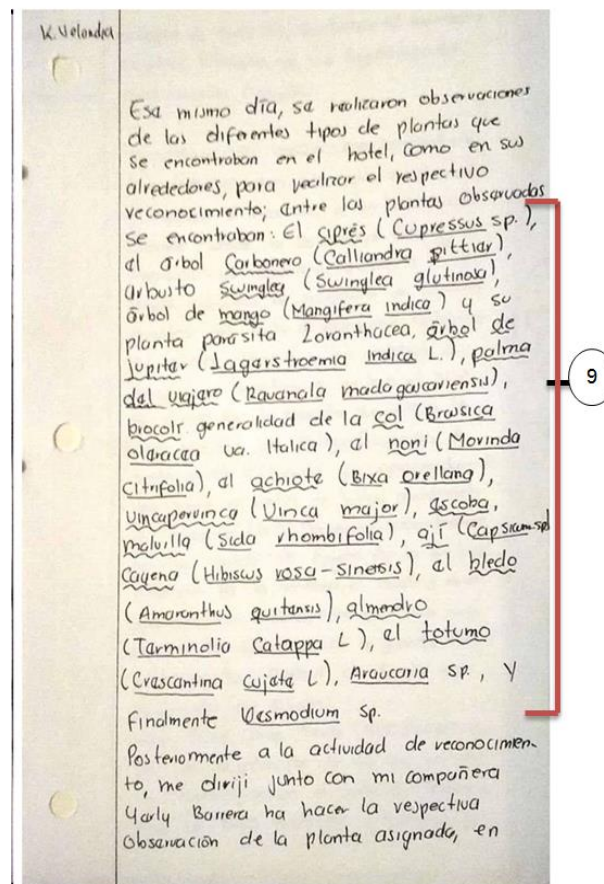 K. Velandia
Esa mismo día, se realizaron observaciones
de las diferentes tipos de plantas que
se encontraban en el hotel, como en sus
alrededores, para realizar el respectivo
reconocimiento; entre las plantas observadas
se encontraban: El siprés (Cupressus sp.),
el árbol Carbonero (Calliandra pittiar),
arbusto Swinglea (Swinglea glutinosa),
árbol de mango (Mangifera indica) y su
planta parásita Loranthacea, árbol de
Jupiter (Lagerstroemia Indica L.), palma
del viajero (Ravanala madagascariensis),
brocolí generalidad de la col (Brassica
olaracea va. Italica), el noni (Morinda
citrifolia), el achiote (Bixa orellana),
vincapervinca (Vinca major), escoba,
malvilla (Sida rhombifolia), ají (Capsicum sp)
Cayena (Hibiscus rosa-sinensis), el bledo
(Amaranthus quitensis), almendro
(Terminalia Catappa L), el totumo
(Crescentina cujete L), Araucaria sp., y
finalmente Desmodium sp.
Posteriormente a la actividad de reconocimien-
to, me diriji junto con mi compañera
Yarly Barrera ha hacer la respectiva
observación de la planta asignada, en
9